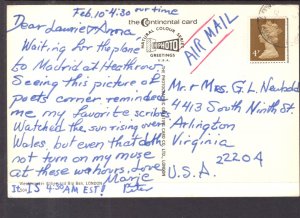 Feb. 10 - 4:30 our time
Dear Laurie & Anna
Waiting for the plane
to Madrid at Heathrow.
Seeing this picture of
poets corner reminded
me my favorite scribes
Watched the sun rising over
Wales, but even that did
not turn on my muse
at these wee hours. Love
Marje
Peter
It IS 4:30 AM EST!
the Continental card
NATURAL COLOUR
PHOTO
AIR MAIL
4P
Mr & Mrs. G. L. Neubold
4413 South Ninth St.
Arlington
Virginia
22204
U.S.A.